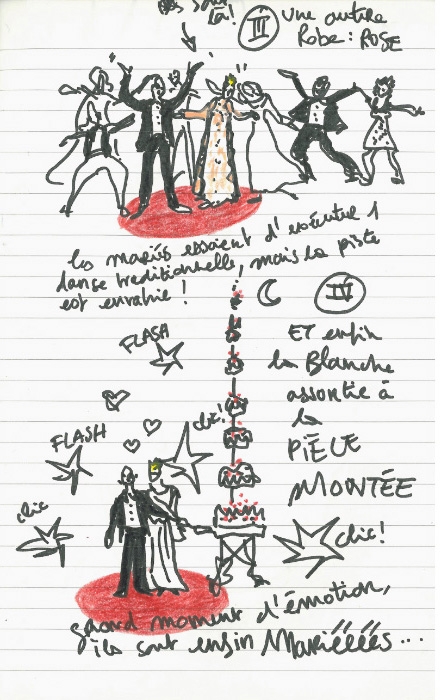 là!
III
Une autre
Robe : ROSE
les mariés essaient d'exécuter 1
danse traditionnelle, mais la piste
est envahie !
IV
FLASH
ET enfin
la Blanche
assortie à
la
PIÈCE
MONTÉE
clic!
FLASH
clic
clic!
grand moment d'émotion,
ils sont enfin Mariéééés...